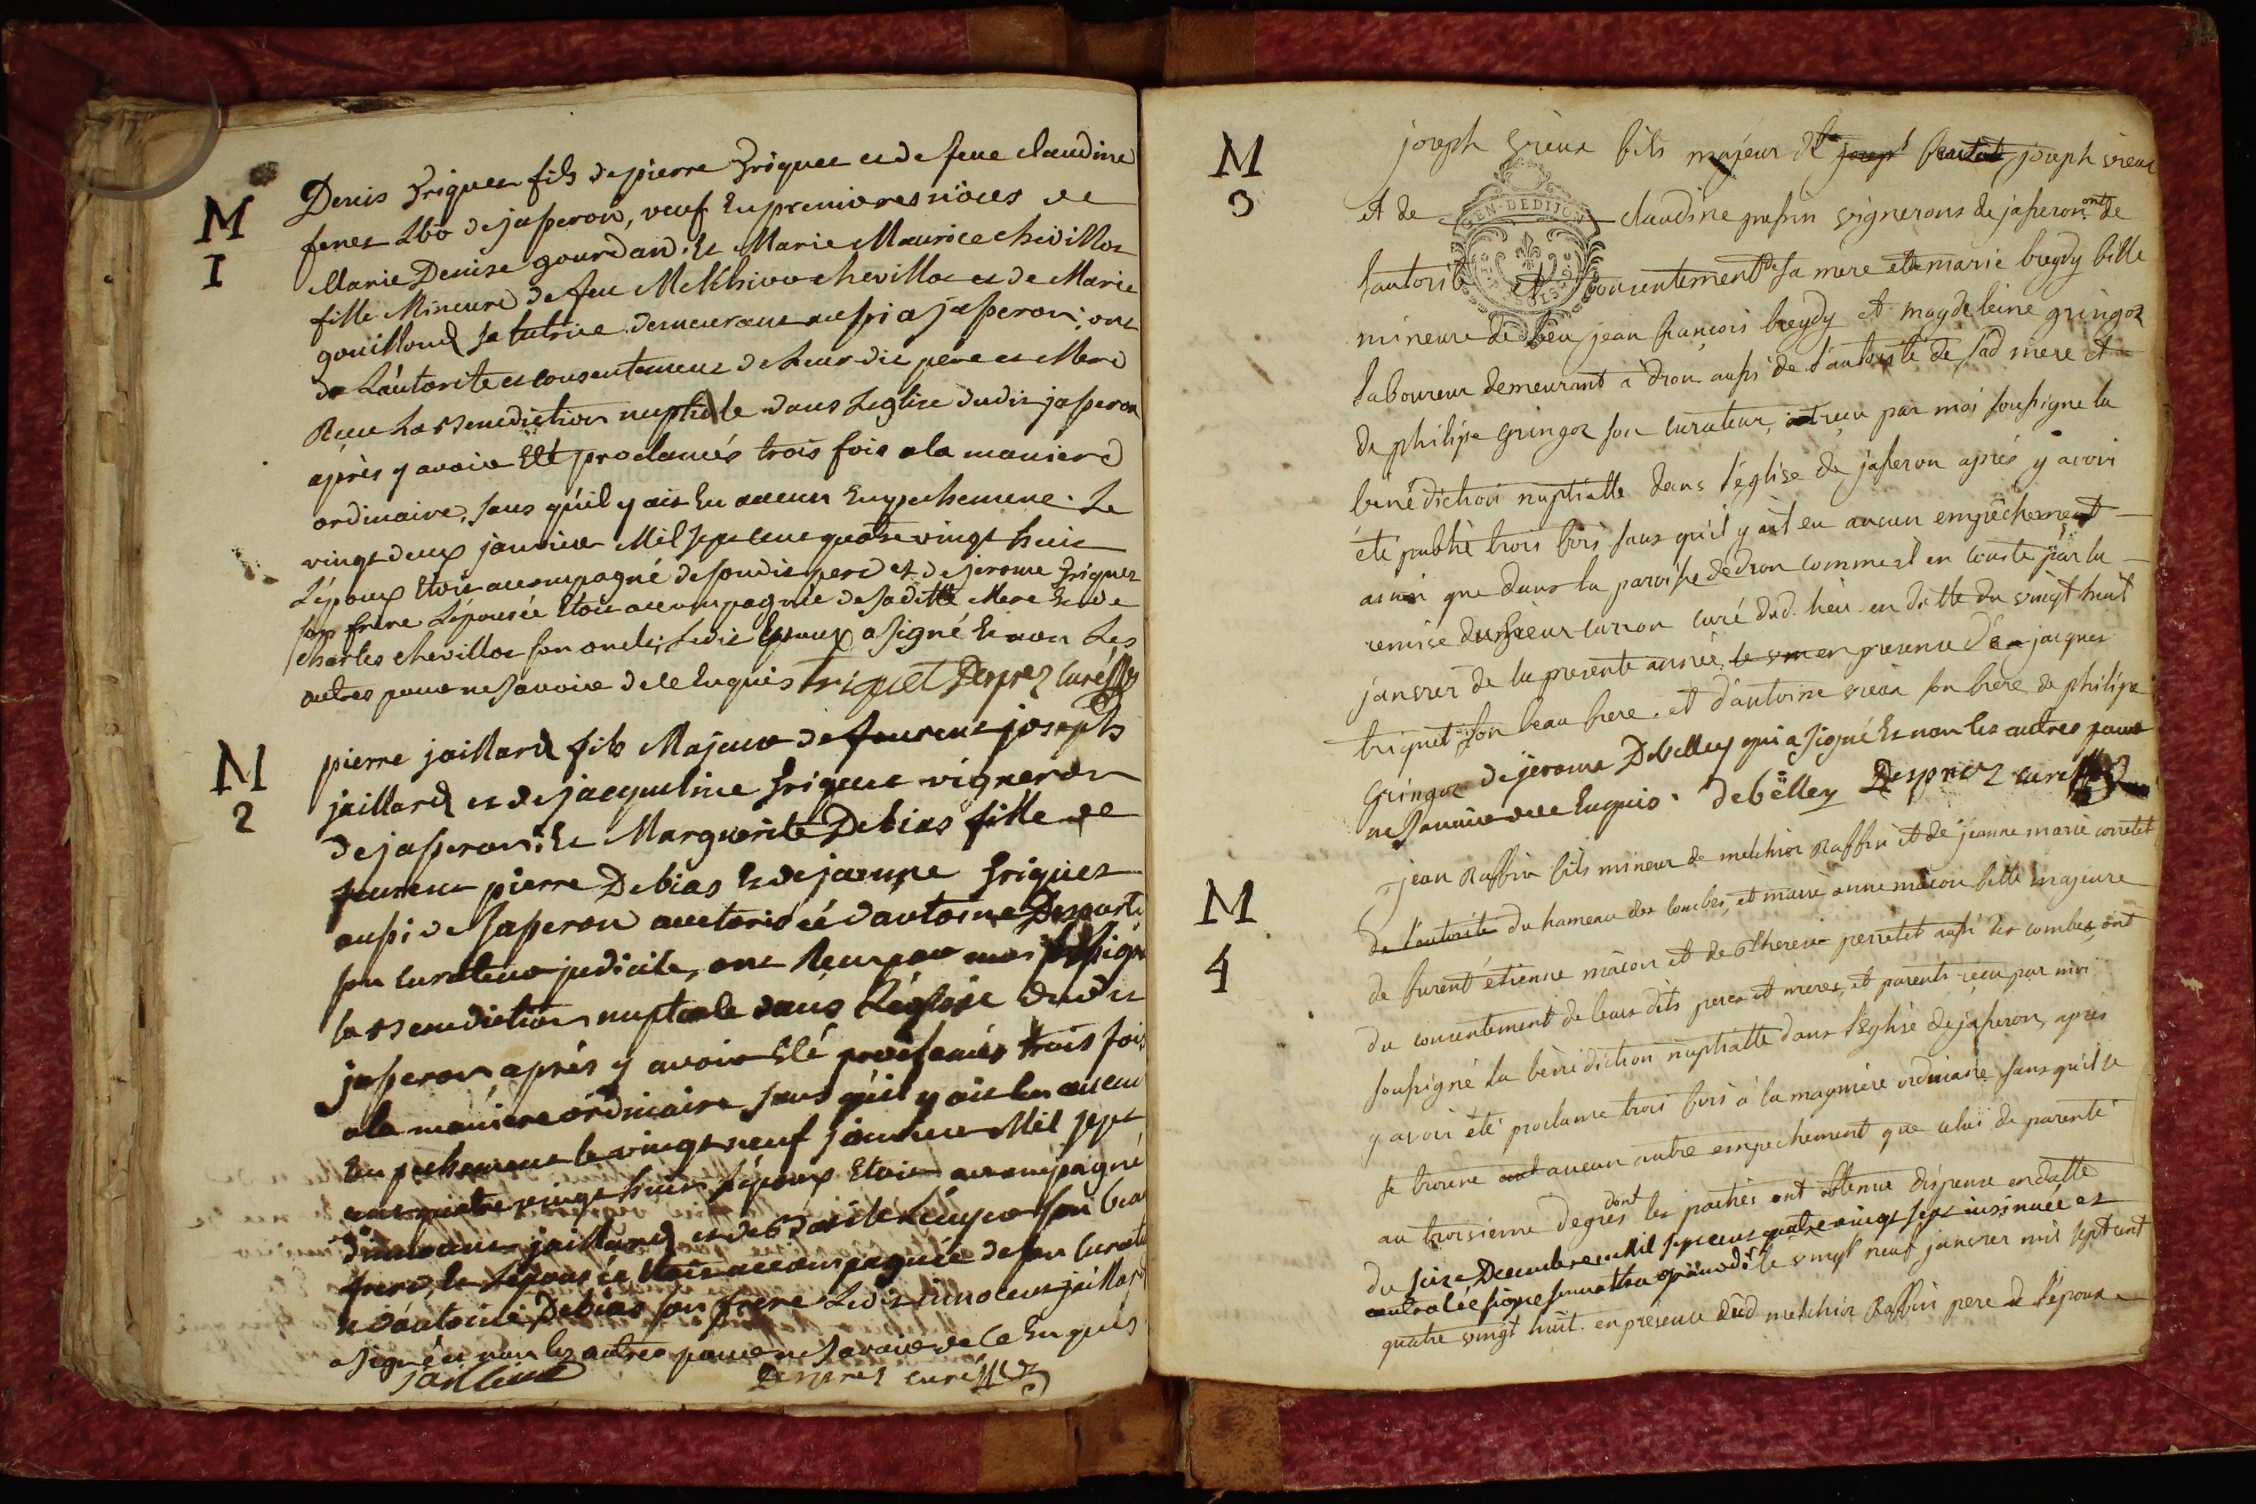 M
1
Denis Triquet fils de pierre Triquet et de feue claudine
feuet de jasseron, veuf En premieres nôces de
Marie Denise gourdan: Et Marie Maurice chevillot
fille Mineure de feu Melchior chevillot et de Marie
gouillond sa tutrice demeurant aussi a jasseron; ont
de L'autorité et consentement de Leur dit pere et Mere
Recu La Benediction nuptiale dans Leglise dudit jasseron
après y avoir Eté proclamés trois fois a la maniere
ordinaire, sans qu'il y ait Eu aucun Empechement. Le
vingt deux janvier Mil sept cent quatre vingt huit
L'époux Etoit accompagné de son dit pere et de jerome Triquet
son frere L'épousée Etoit accompagnée de sa ditte Mere Et de
charles chevillot son oncle; Ledit Epoux a signé Et non Les
autres pour ne savoir de ce Enquis triquet Desprez curé
M
2
pierre jaillard fils Majeur de feurent joseph
jaillard et de jacqueline Triquet vigneron
de jasseron: Et Marguerite Debias fille de
feurent pierre Debias Et de jeanne Triquet
aussi de jasseron auctorisée d'antoine
son curateur judiciel, ont Reçu par moi soussigné
la Benediction nuptiale dans L'église dudit
jasseron après y avoir Eté proclamés trois fois
a la maniere ordinaire sans qu'il y ait Eu aucun
Empechement le vingt neuf janvier Mil sept
cent quatre vingt huit L'époux Etoit accompagné
d'innocent jaillard et de son beau
frere, Et L'épousée Etoit accompagnée de son curateur
et d'antoine Debias son frere Ledit innocent jaillard
a signé et non les autres pour ne savoir de ce Enquis
jaillard Desprez curé
M
3
joseph vieux fils majeur de joseph vieux
GEN. DE DIJON
et de claudine vignerons de jasseron ont de
l'autorité et consentement de sa mere et marie breydy fille
mineure de feu jean françois breydy et magdeleine gringoz
laboureur demeurant à drom aussi de l'autorité de sad mere et
de philipe gringoz son curateur, ont reçu par moi soussigné la
bénédiction nuptialle dans l'église de jasseron après y avoir
été publié trois fois sans qu'il y ait eu aucun empêchement
ainsi que dans la paroisse de drom comme il en conste par la
remise du sieur curé dud. lieu en datte du vingt huit
janvier de la presente année, en presence de jacques
triquet son beau frere. et d'antoine vieux son frere de philipe
Gringoz de jerome Debelley qui a signé Et non les autres pour
ne savoir de ce Enquis. debëlley Desprez curé
M
4
jean Raffin fils mineur de melchior Raffin et de jeanne marie corretet
de l'autorité du hameau des combes, et marie anne mâcon fille majeure
de furent étienne mâcon et de therese perretet aussi des combes, ont
du consentement de leurs dits peres et meres, et parents reçu par moi
soussigné la bénédiction nuptialle dans l'Eglise de jasseron, après
y avoir été proclamé trois fois à la magnière ordinaire sans qu'il se
se trouve aucun autre empechement que celui de parenté
au troisieme degrés dont les parties ont obtenue dispense en datte
du seize Decembre Mil sept cent quatre vingt sept insinuée et
le vingt neuf janvier mil sept cent
quatre vingt huit. en présence dud melchior Raffin pere de l'époux